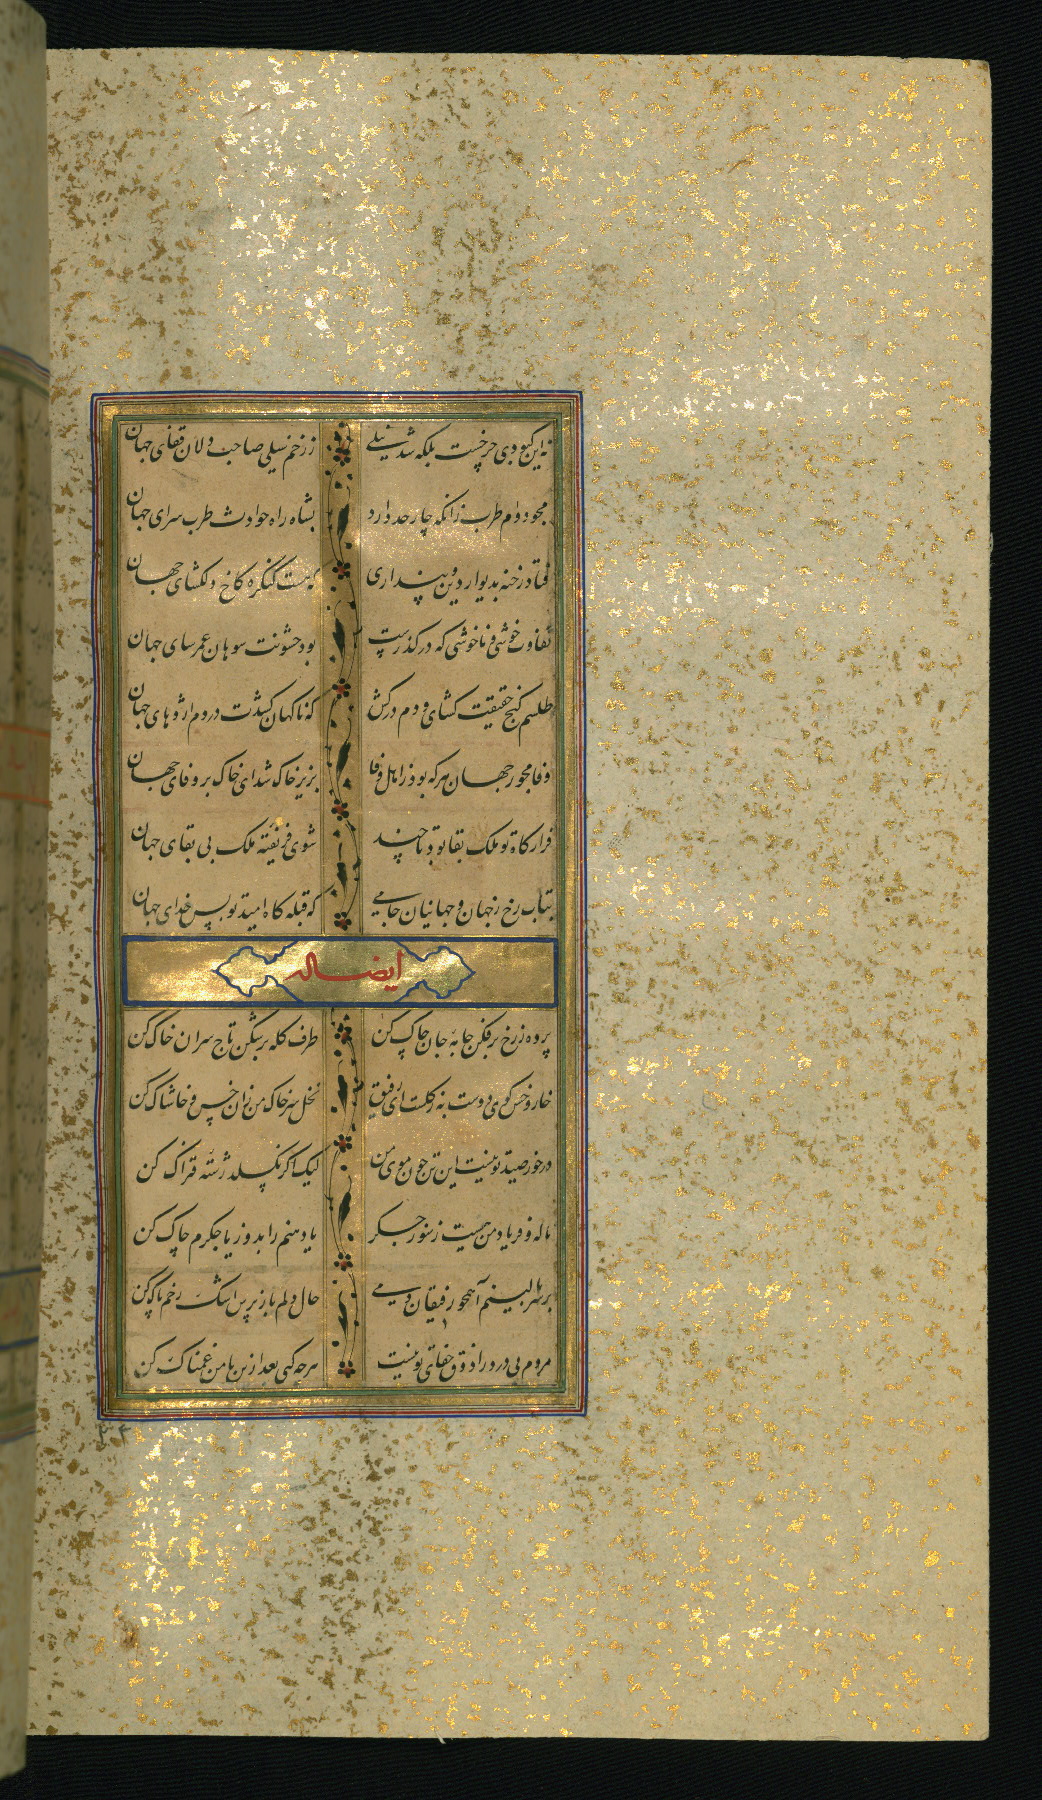 نه این کبودی چرخست بلکه شد نیلی ز زخم سیلی صاحب دلان قفای جهان
مجو دوام طرب زانکه چار حد دارد بشاه راه حوادث طرب سرای جهان
فتاد رخنه بدیوار دین چه پنداری که پست کنگره کاخ دلکشای جهان
تفاوت خوشی و ناخوشی که در گذرست بود خشونت سوهان عمرسای جهان
طلسم گنج حقیقت کشای و دم درکش که ناکهان نکشدت در دم اژدهای جهان
وفا مجو ز جهان هر که بود ز اهل وفا بزیر خاک شد ای خاک بر وفای جهان
قرارگاه تو ملک بقا بود تا چند شوی فریفته ملک بی بقای جهان
بتاب رخ ز جهان و جهانیان جامی که قبله گاه امید تو بس خدای جهان
ایضا له
پرده ز رخ برفکن جامه جان چاک کن طرف کله برشکن تاج سران خاک کن
خار و خس کوی دوست به ز گلست ای رفیق نخل سر خاک من زان خس و خاشاک کن
درخور صید تو نیست این تن چون موی من لیک اگر بگسلد رشته فتراک کن
ناله و فریاد من هست ز سوز جگر یا دهنم را بدوز یا جگرم چاک کن
بر سر بالینم آ همچو رفیقان دمی حال دلم باز پرس اشک رخم پاک کن
مردم بی درد را ذوق جفای تو نیست هر چه کنی بعد ازین با من غمناک کن